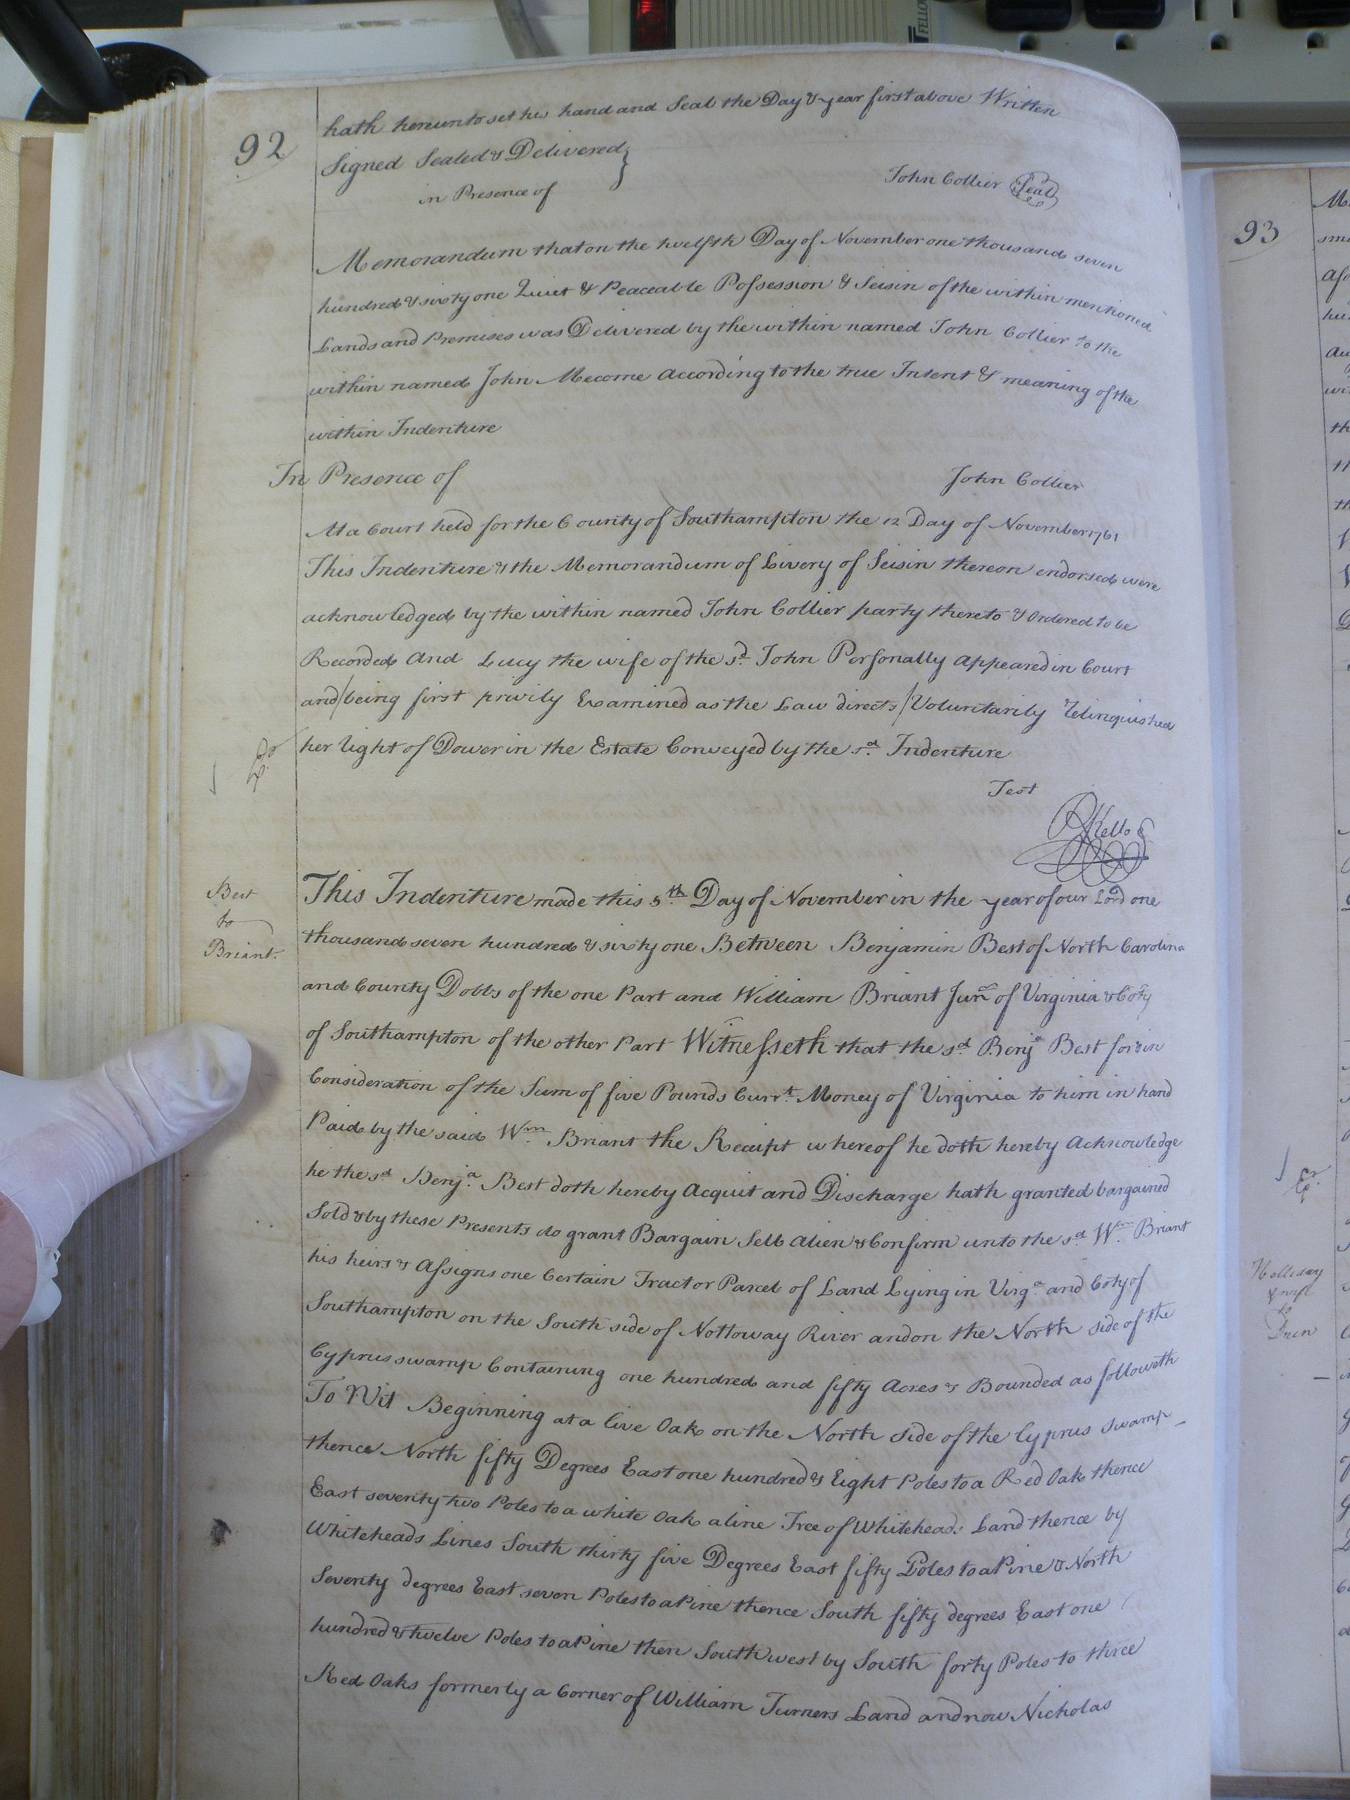 92
hath hereunto set his hand and Seal the Day & year first above Written
Signed Sealed & Delivered
in Presence of
John Collier Seal
Memorandum that on the twelfth Day of November one thousand seven
hundred & sixty one Quiet & Peaceable Possession & Seisin of the within mentioned
Lands and Premises was Delivered by the within named John Collier to the
within named John Mecome According to the true Intent & meaning of the
within Indenture
In Presence of
John Collier
At a Court held for the County of Southampton the 12 Day of November 1761
This Indenture & the Memorandum of Livery of Seisin thereon endorsed were
acknowledged by the within named John Collier party thereto & Ordered to be
Recorded And Lucy the wife of the sd. John Personally Appeared in Court
and /being first privily Examined as the Law directs/ Voluntarily relinquished
her right of Dower in the Estate Conveyed by the sd. Indenture
Test
R Kello
Best
to
Briant.
This Indenture made this 5th. Day of November in the year of our Lord one
thousand seven hundred & sixty one Between Benjamin Best of North Carolina
and County Dobbs of the one Part and William Briant Junr. of Virginia & Coty
of Southampton of the other Part Witnesseth that the sd. Benja. Best for & in
Consideration of the Sum of five Pounds Currt. Money of Virginia to him in hand
Paid by the said Wm. Briant the Receipt whereof he doth hereby Acknowledge
he the sd. Benja. Best doth hereby Acquit and Discharge hath granted bargained
Sold & by these Presents do grant Bargain Sell Alien & Confirm unto the sd. Wm. Briant
his heirs & Assigns one Certain Tract or Parcel of Land Lying in Virga. and Coty of
Southampton on the South side of Nottoway River and on the North side of the
Cyprus swamp Containing one hundred and fifty Acres & Bounded as followeth
To Wit Beginning at a live Oak on the North side of the Cyprus swamp
thence North fifty Degrees East one hundred & Eight Poles to a Red Oak thence
East seventy two Poles to a white Oak a line Tree of Whiteheads Land thence by
Whiteheads Lines South thirty five Degrees East fifty Poles to a Pine & North
Seventy degrees East seven Poles to a Pine thence South fifty degrees East one
hundred & twelve Poles to a Pine then South west by South forty Poles to three
Red Oaks formerly a Corner of William Turners Land and now Nicholas
93
Holleday
& wife
to